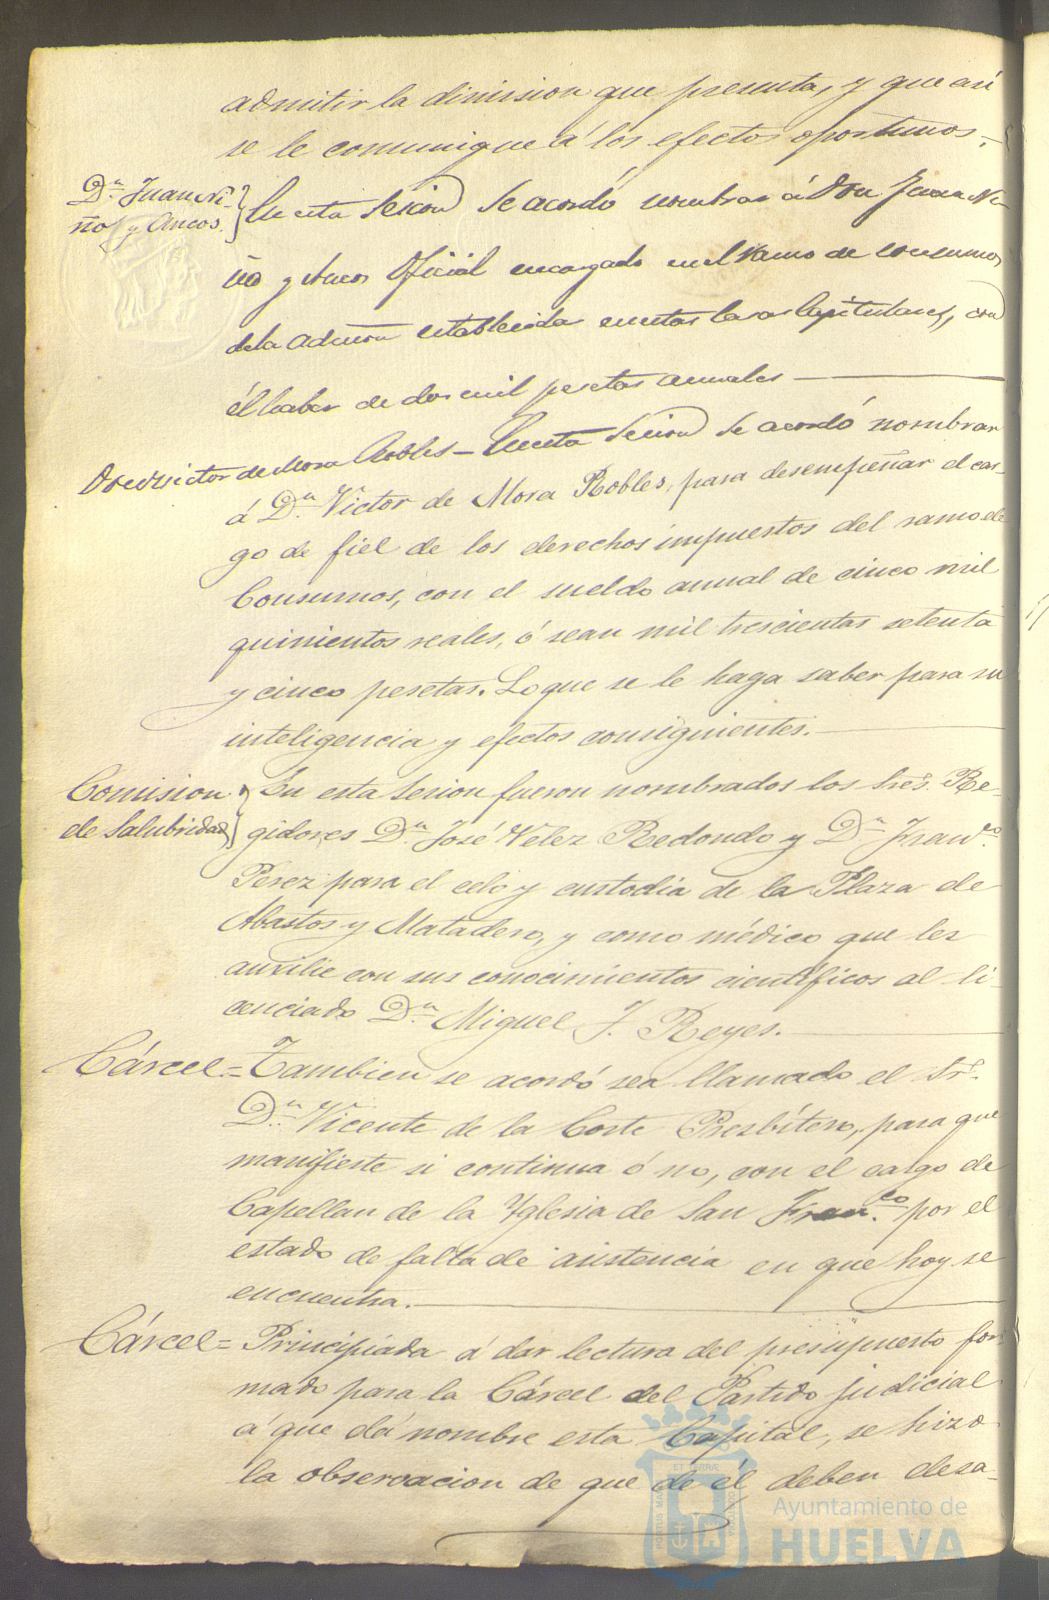 admitir la dimision que presenta, y que así
se le comunique á los efectos oportunos.
Dn. Juan Ni-
ño y Ancos.
En esta Sesion se acordó nombrar á Don Juan Ni-
ño y Ancos Oficial encargado en el ramo de consumos
de la aduana establecida en estas casas Capitulares, con
él haber de dos mil pesetas anuales
Don Victor de Mora Robles - En esta Sesion se acordó nombrar
á Dn. Victor de Mora Robles, para desempeñar el car-
go de fiel de los derechos impuestos del ramo de
Consumos, con el sueldo anual de cinco mil
quinientos reales, ó sean mil trescientas setenta
y cinco pesetas. Lo que se le haga saber para su
inteligencia y efectos consiguientes.
Comision
de Salubridad
En esta Sesion fueron nombrados los Sres. Re-
gidores Dn. José Velez Redondo y Dn. Franco.
Perez para el celo y custodia de la Plaza de
Abastos y Matadero, y como médico que les
auxilie con sus conocimientos científicos al li-
cenciado Dn. Miguel J. Reyes.
Cárcel = Tambien se acordó sea llamado el Sr.
Dn. Vicente de la Corte Presbítero, para que
manifieste si continua ó no, con el cargo de
Capellan de la Yglesia de San Franco. por el
estado de falta de asistencia en que hoy se
encuentra.
Cárcel = Principiada á dar lectura del presupuesto for-
mado para la Cárcel del Partido judicial
á que dá nombre esta Capital, se hizo
la observacion de que de él deben desa-
Ayuntamiento de
HUELVA